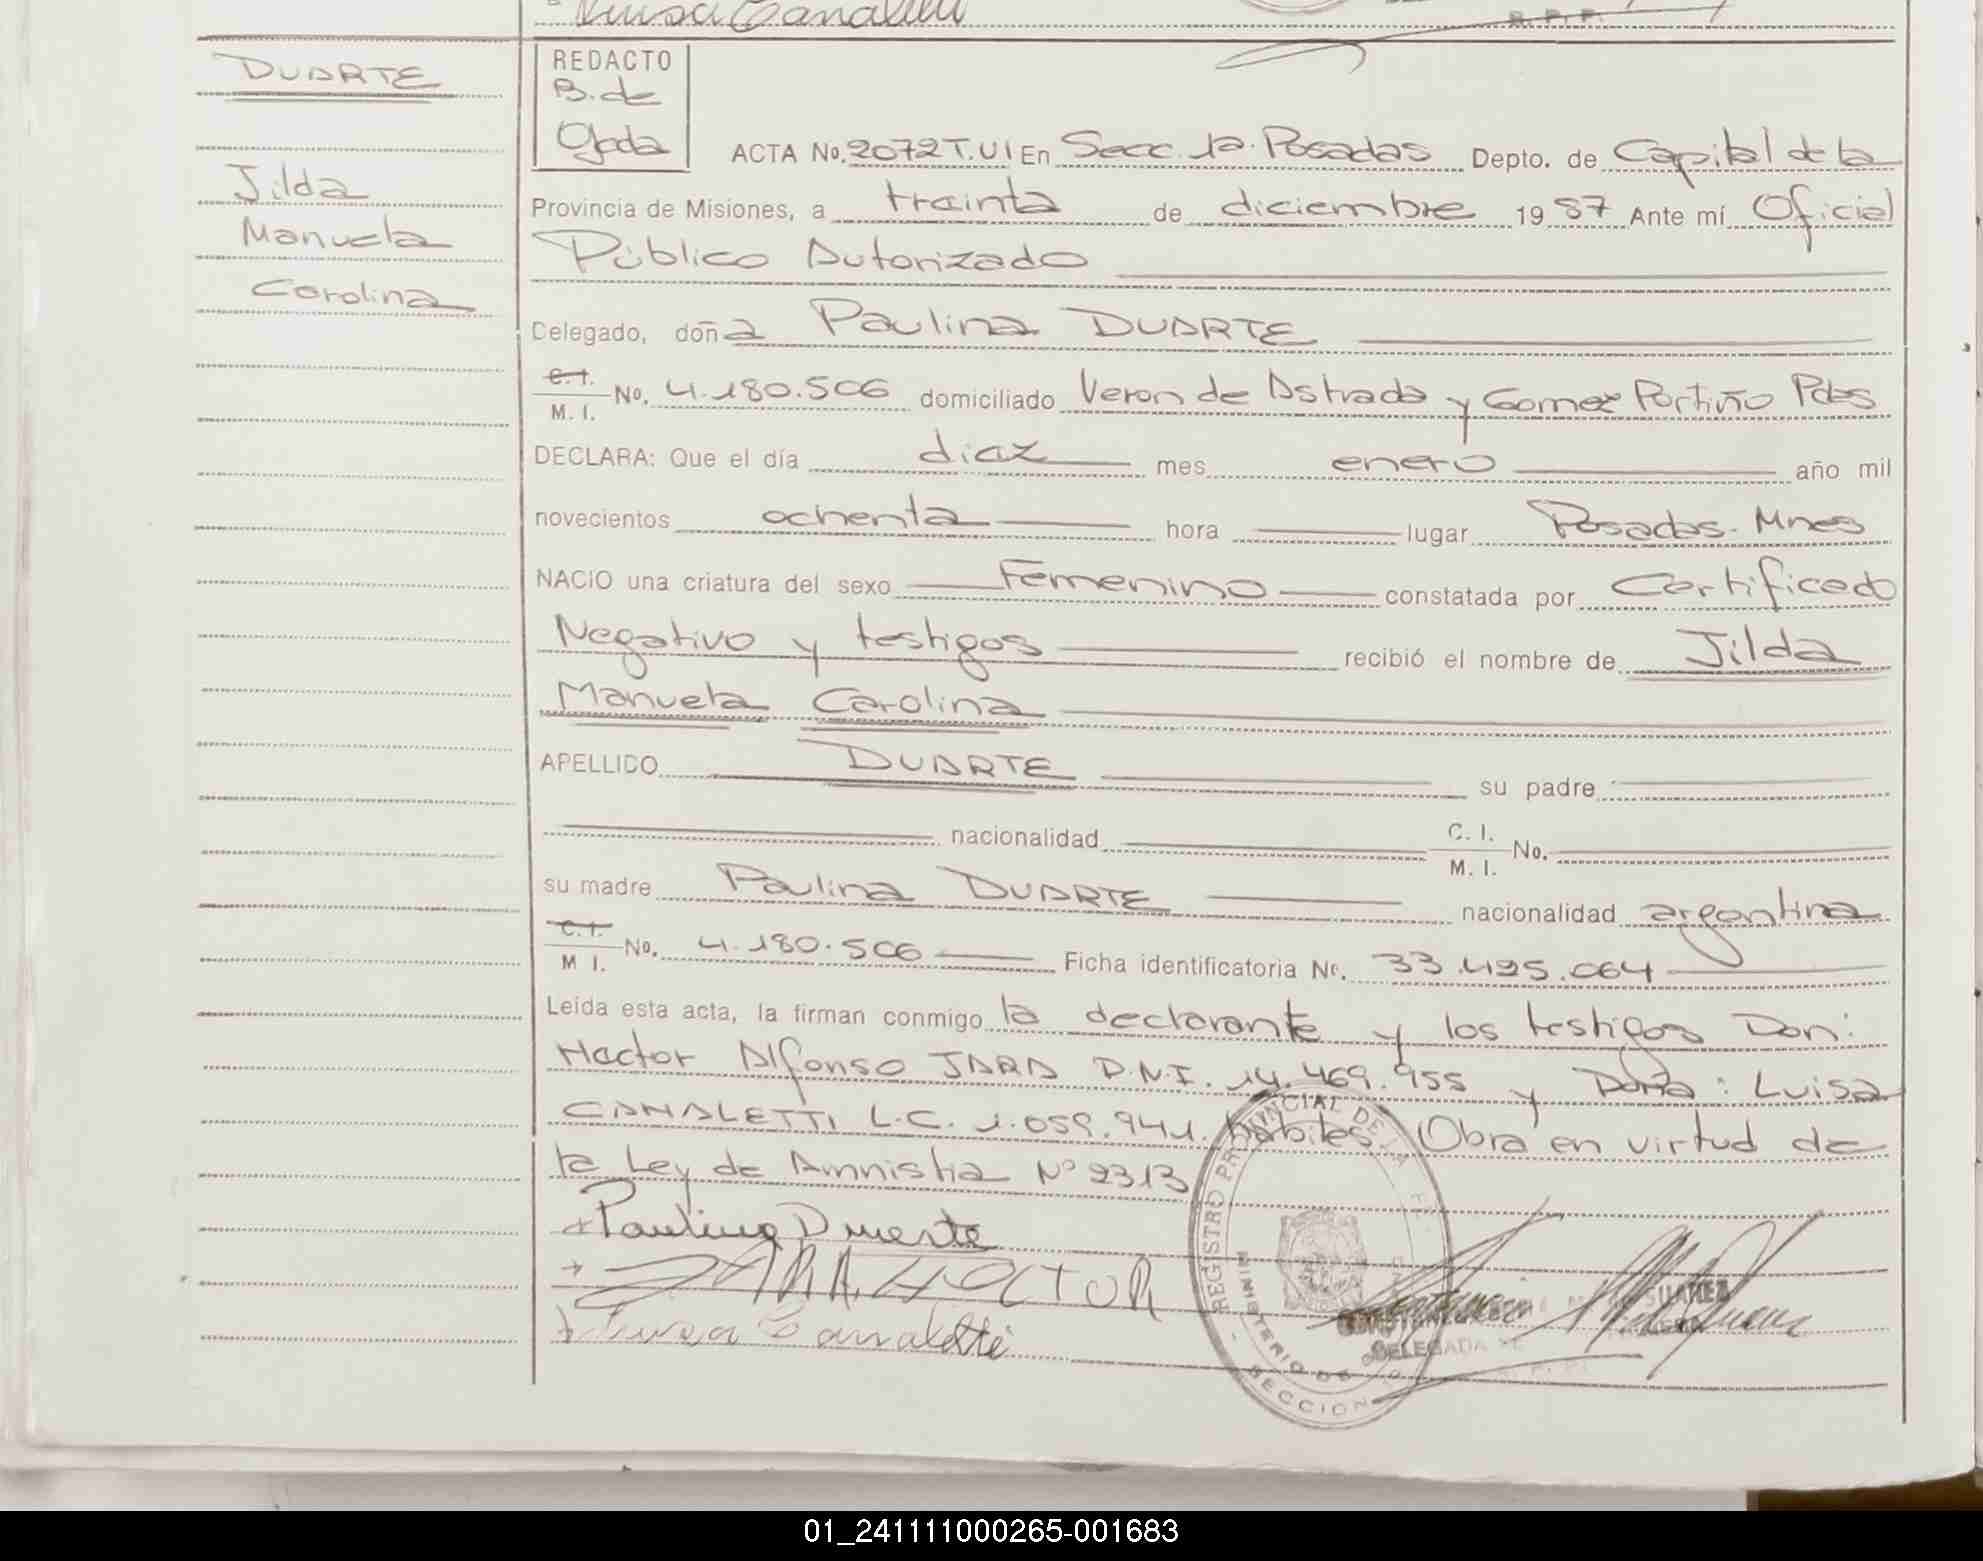 Luisa Canaletti
R. P. P.
DUARTE
Jilda
Manuela
Carolina
REDACTO
B. de
Ojeda
ACTA No. 2072 T.VI En Secc. 1a. Posadas Depto. de Capital de la
Provincia de Misiones, a treinta de diciembre 1987 Ante mí Oficial
Público Autorizado
Delegado, doña Paulina DUARTE
C.I. M. I. No. 4.180.506 domiciliado Veron de Astrada y Gomez Portiño Pdas
DECLARA: Que el día diez mes enero año mil
novecientos ochenta hora lugar Posadas. Mnes
NACIO una criatura del sexo Femenino constatada por Certificado
Negativo y testigos recibió el nombre de Jilda
Manuela Carolina
APELLIDO DUARTE su padre
nacionalidad C. I. M. I. No.
su madre Paulina DUARTE nacionalidad argentina
C.I. M I. No. 4.180.506 Ficha identificatoria Nº. 33.495.064
Leída esta acta, la firman conmigo la declarante y los testigos Don:
Hector Alfonso JARA D.N.I. 14.469.955 y Doña: Luisa
CANALETTI L.C. 1.059.941. habiles. Obra en virtud de
la Ley de Amnistia Nº 2313
+Paulina Duarte
+ JARA HECTOR
+ Luisa Canaletti
REGISTRO PROVINCIAL DE LA
MINISTERIO DE
SECCION
SUAREZ
DELEGADA
01_241111000265-001683